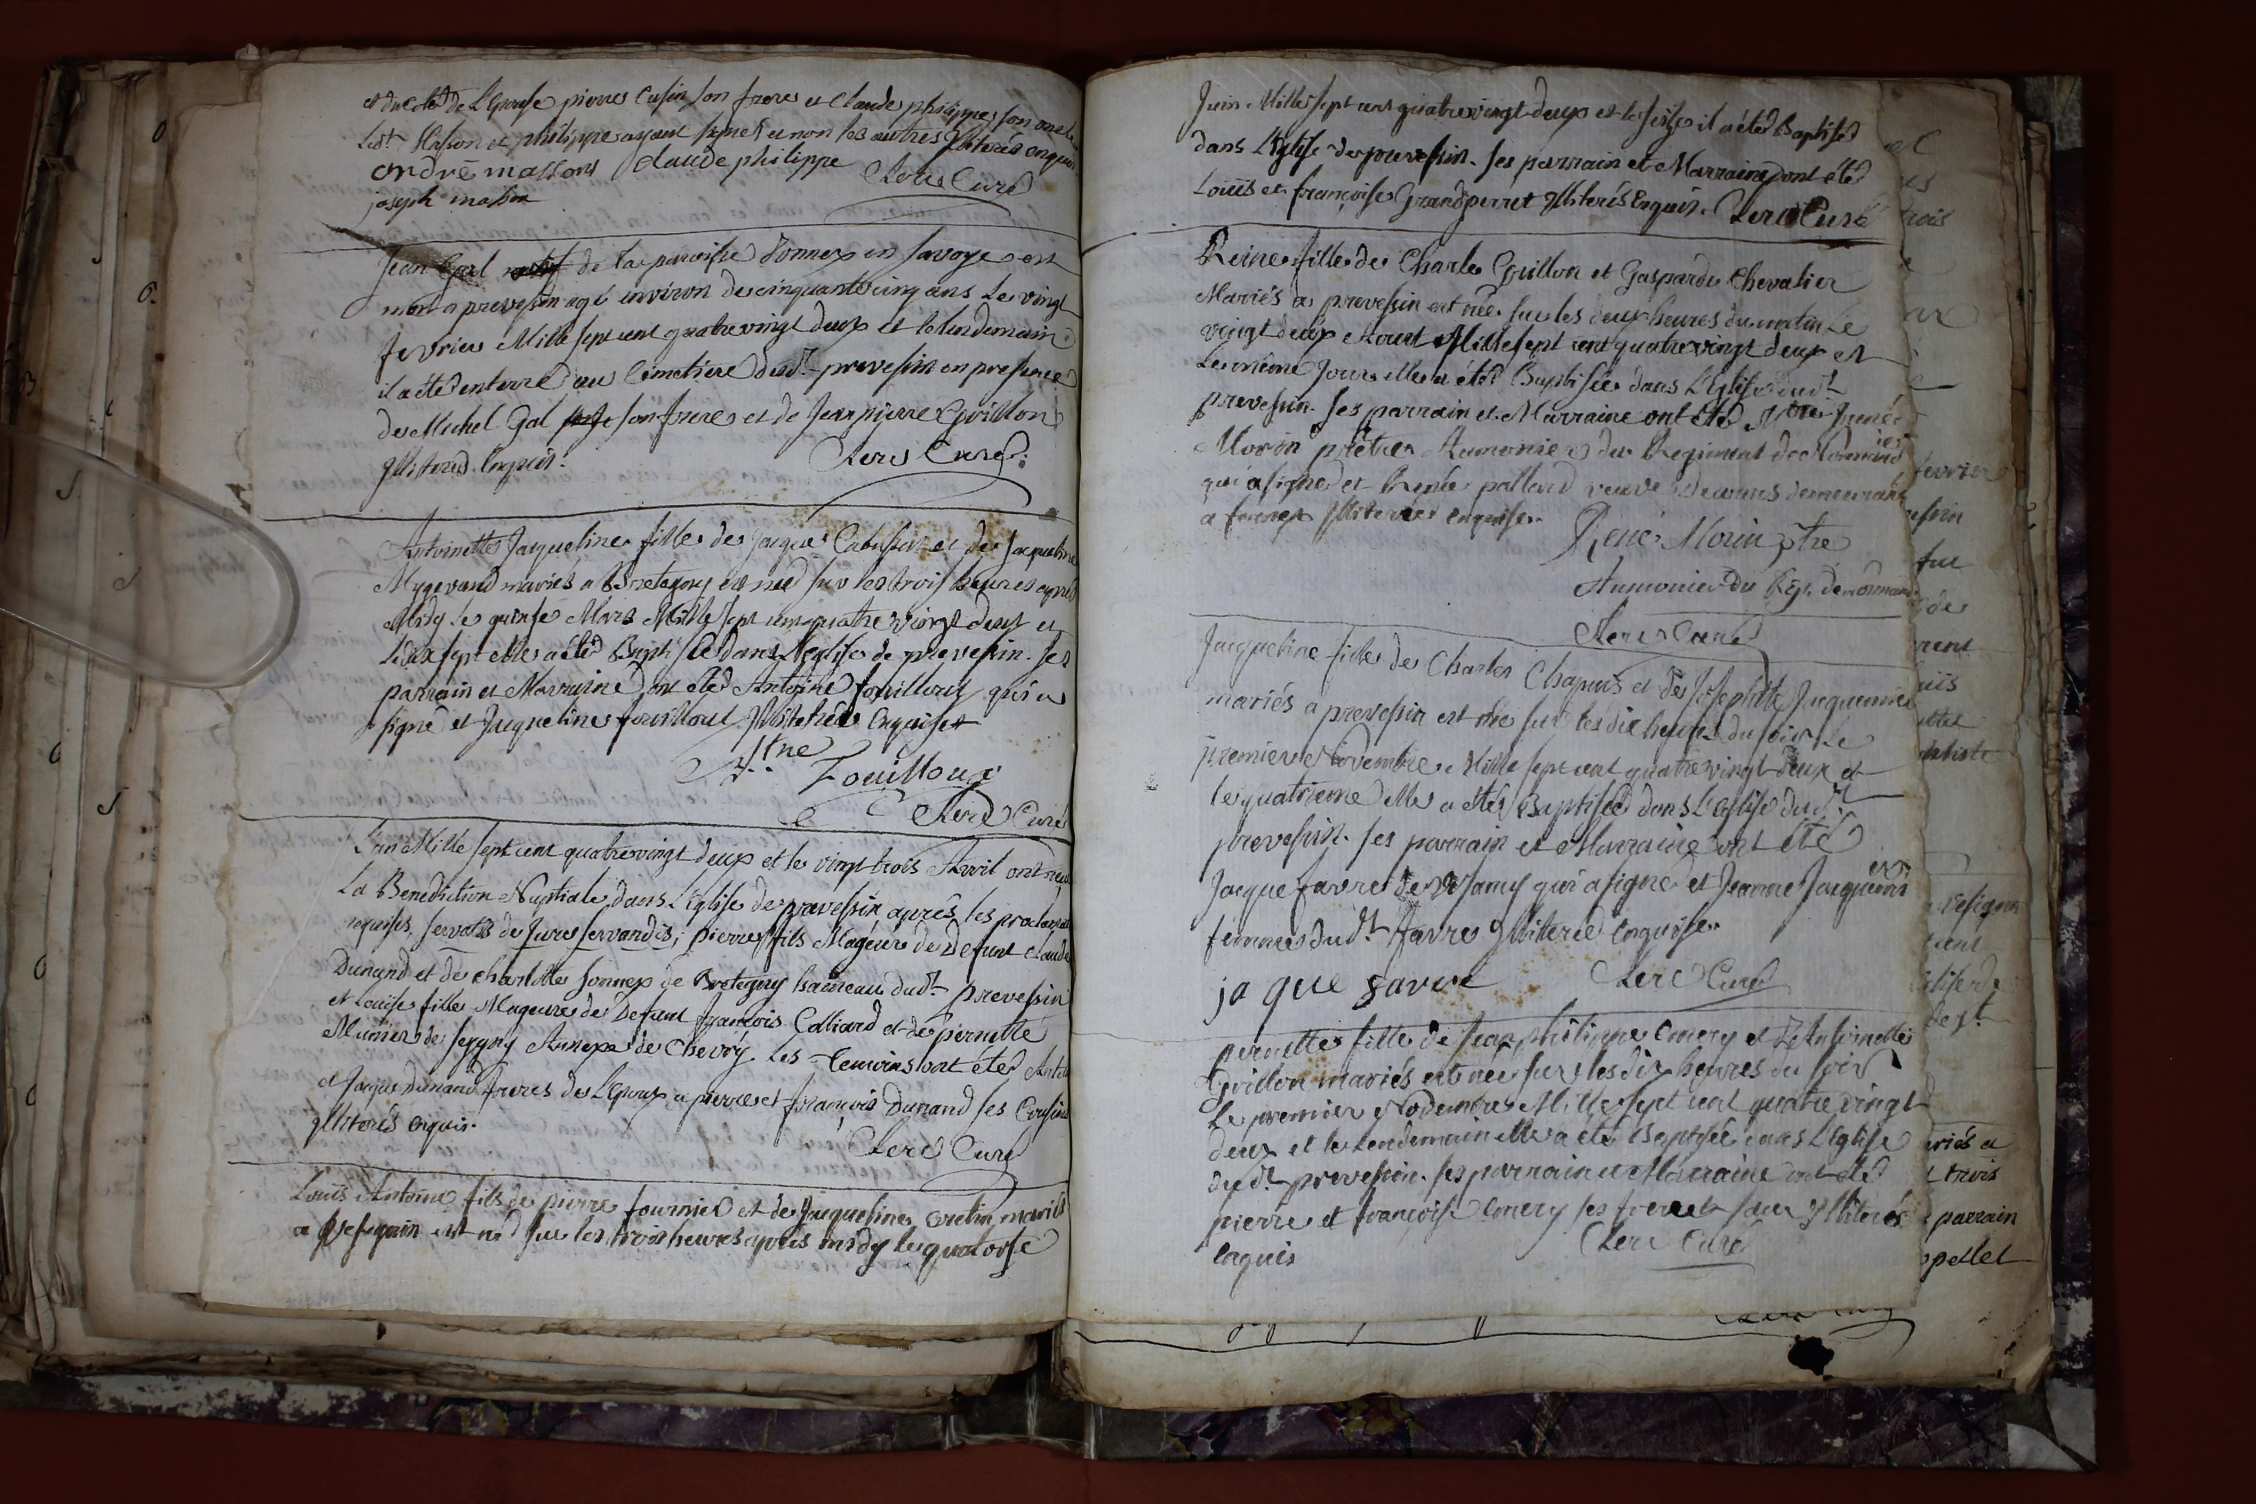 et du coté de L'Epouse pierre Cusin son frere et Claude philippe son oncle
Ledt Masson et philippe ayant signé et non les autres Illiterés enquis
andré massons Claude philippe Clerc Curé
joseph masson
Jean Gal de la paroisse Donnex en Savoye est
mort a prevessin agé environ de cinquante cinq ans Le vingt
fevrier Mille sept cent quatre vingt deux et le lendemain
il a été enterré au Cimetiere dudt prevessin en presence
de Michel Gal son frere et de Jean pierre Gvillon
Illiterés Enquis. Clerc Curé
Antoinette Jacqueline fille de Jacque Cabussin et de Jacqueline
Mygevand mariés a Bretegny est née sur les trois heures aprés
Midy le quinse Mars Mille sept cent quatre vingt deux et
le dix sept elle a été Baptisée dans L'eglise de prevessin. Ses
parrain et Marraine ont été Antoine fouilloux qui a
signé et Jacqueline fouilloux Illiterée Enquise
Atne Fouilloux
Clerc Curé
L'an Mille sept cent quatre vingt deux et le vingt trois Avril ont reçu
La Benediction Nuptiale dans L'Eglise de prevessin aprés les proclamat
requises, servatis de Jure servandis, pierre fils Majeur de Defunt Claude
Dunand et de charlotte Jonnex de Bretegny hameau dudt prevessin
et Louise fille Mageure de Defunt françois Colliard et de pernette
Munier de Segny Annexe de Chevry. Les Temoins ont été Antoi
et Jacque Dunand freres de L'Epoux a pierre et françois Dunand ses Cousins
Illiterés enquis. Clerc Curé
Louis Antoine fils de pierre fournier et de Jacqueline mariés
a Vesegnin est né sur les trois heures aprés midy le quatorse
Juin Mille sept cent quatre vingt deux et le seise il a été Baptisé
dans L'Eglise de prevessin. Ses parrain et Marraine ont été
Louis et françoise Grandperret Illiterés Enquis. Clerc Curé
Reine fille de Charle Gvillon et Gasparde Chevalier
Mariés a prevessin est née sur les deux heures du matin Le
vingt deux Aout Mille sept cent quatre vingt deux et
Le même Jour elle a été Baptisée dans L'Eglise dudt
prevessin. Ses parrain et Marraine ont été Mre Renée
Morin prêtre Aumonier du Regiment de Normandie
qui a signé et Renée pallard veuve demeurant
a fernex Illiterée enquise.
René Morin ptre
Aumonier du Rgt de normandie
Clerc Curé
Jacqueline fille de Charles Chapuis et de Josephte Jacquemier
mariés a prevessin est née sur les dix heures du soir Le
premier Novembre Mille sept cent quatre vingt deux et
le quatrieme elle a été Baptisée dans L'eglise dudt
prevessin. Ses parrain et Marraine ont été
Jacque favre de qui a signé et Jeanne Jacquemier
femme dudt favre Illiterée enquise.
ja que favre Clerc Curé
pernette fille de Jean philippe Emery et D'Antoinette
Gvillon mariés est née sur les dix heures du soir
Le premier Novembre Mille sept cent quatre vingt
deux et le Lendemain elle a été Baptisée dans L'Eglise
dudt prevessin. ses parrain et Marraine ont été
pierre et françoise Emery ses frere et sœur Illiterés
Enquis Clerc Curé
trois
fevrier
fut
de
trois
parrain